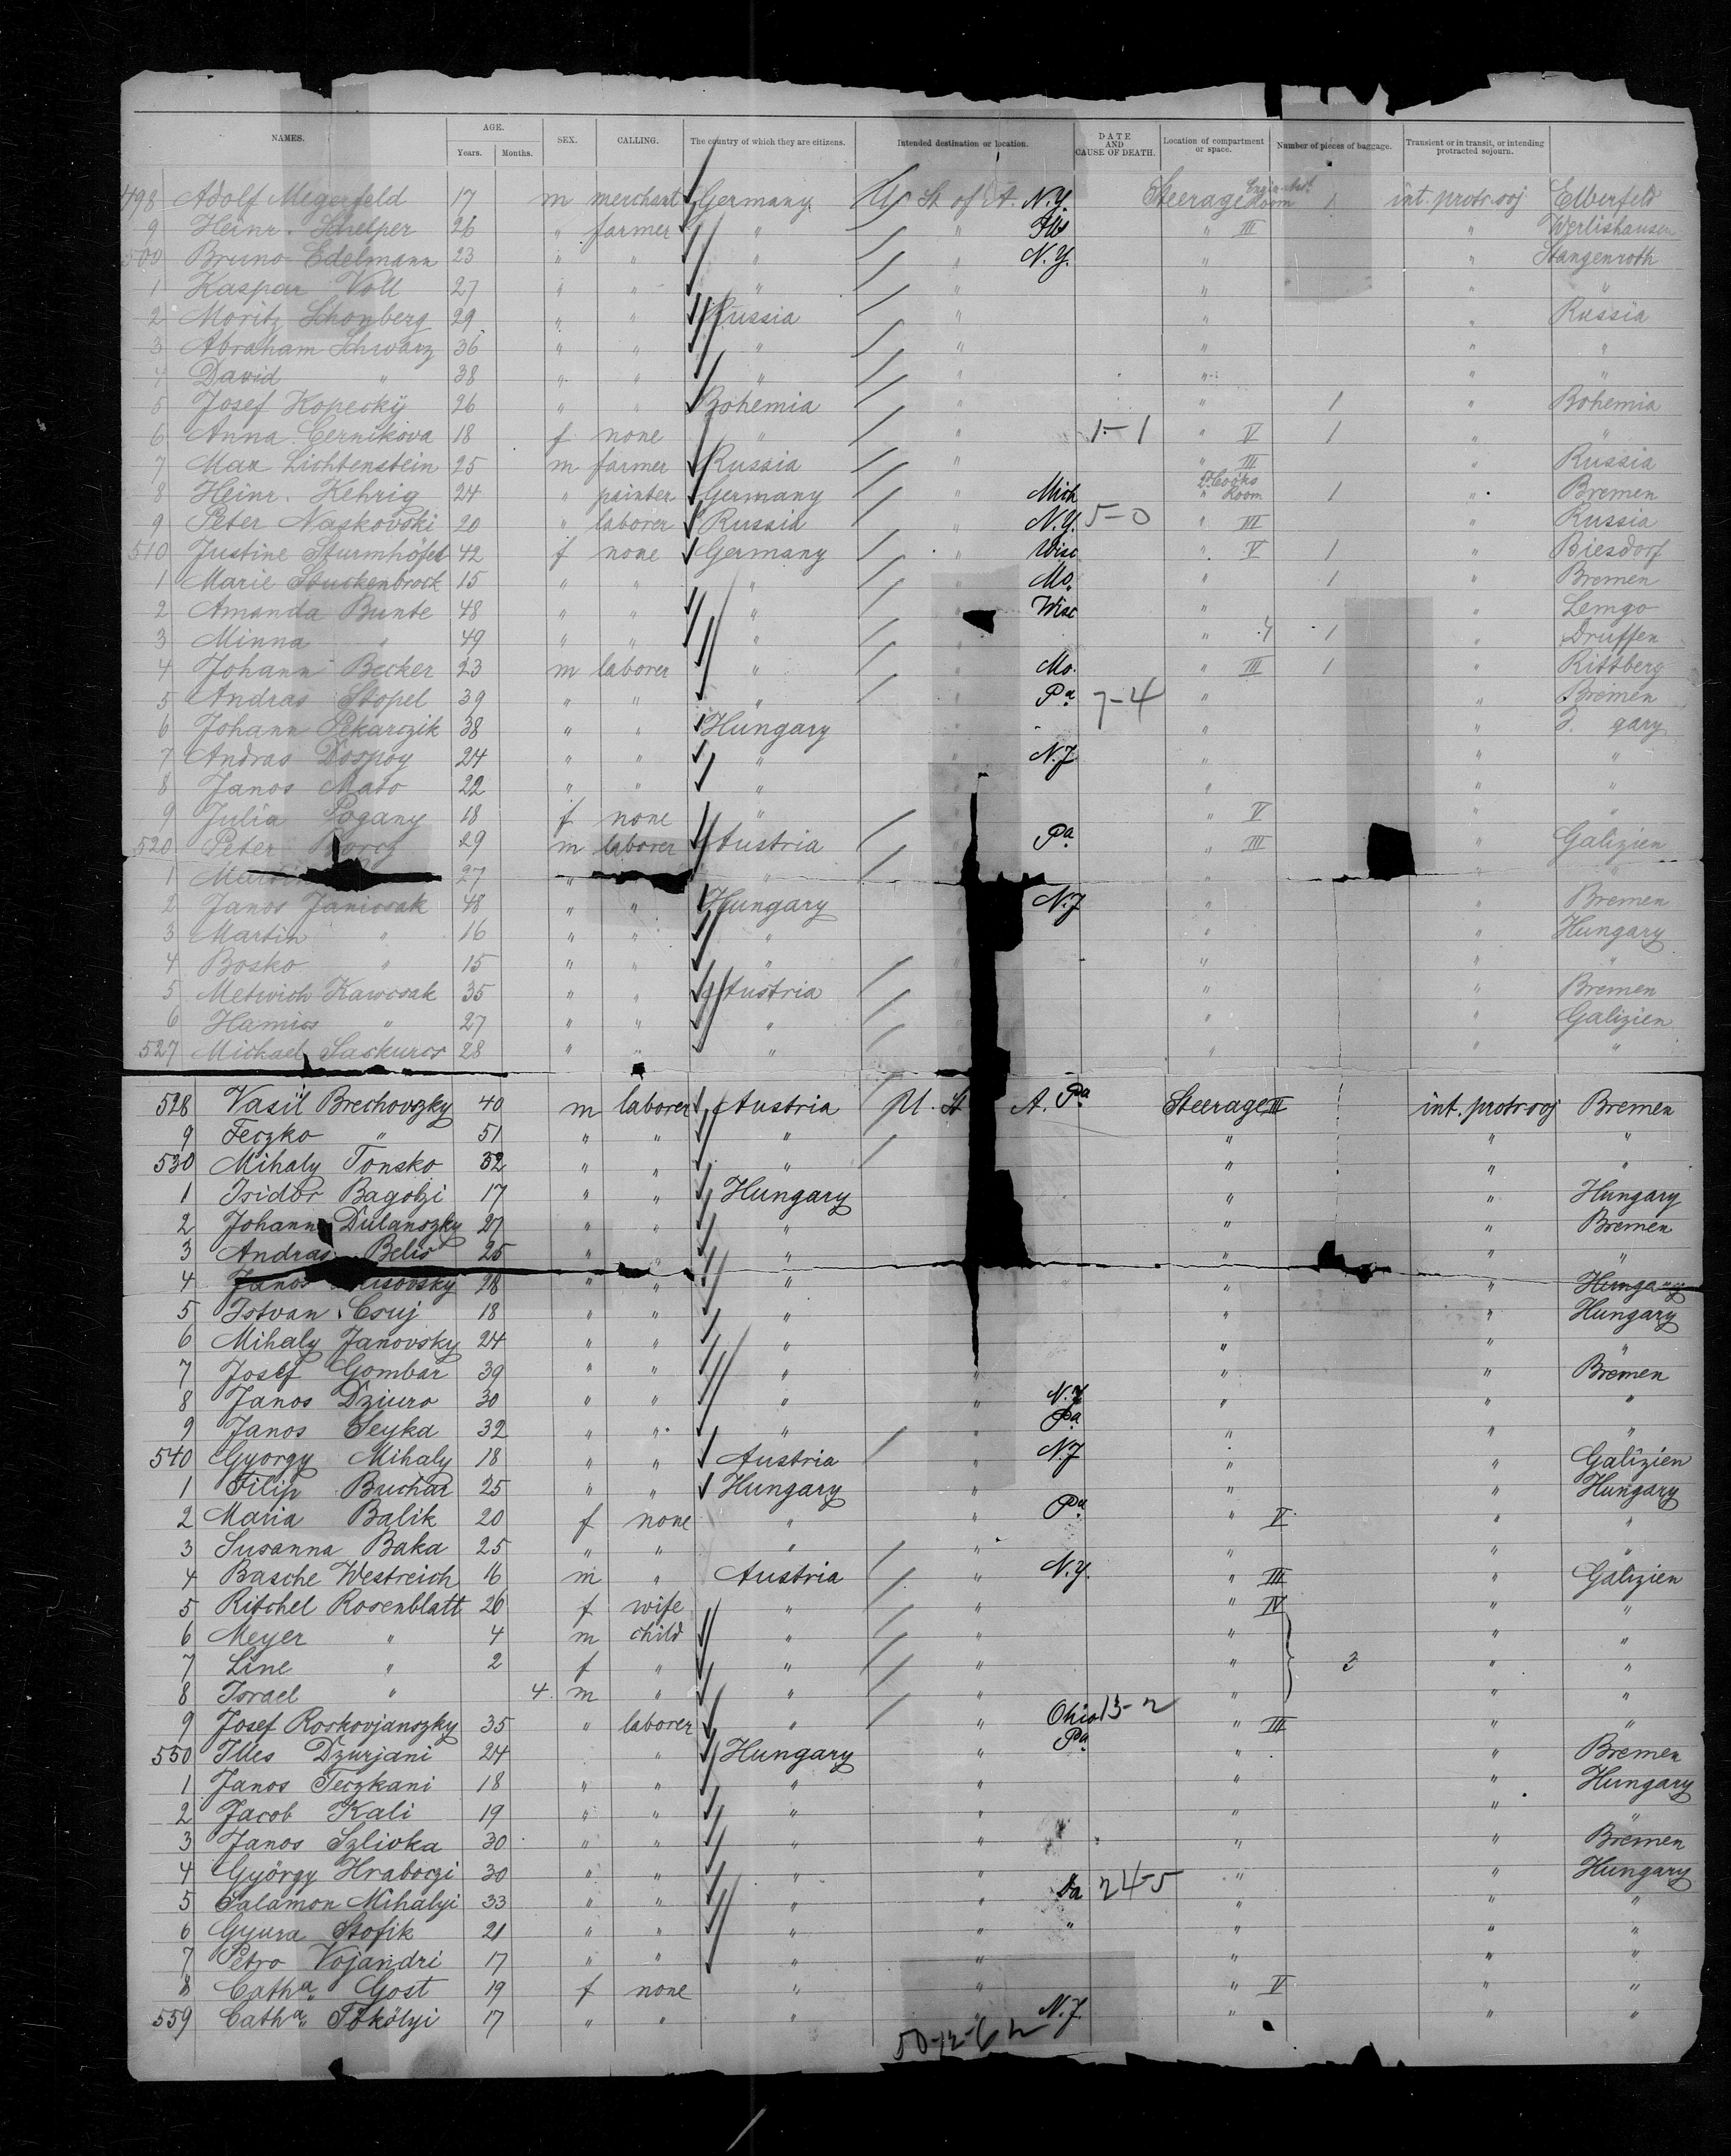 NAMES. AGE. SEX. CALLING. The country of which they are citizens. Intended destination or location. DATE AND CAUSE OF DEATH. Location of compartment or space. Number of pieces of baggage. Transient or in transit, or intending protracted sojourn.
Years. Months.
498 Adolf Megerfeld 17 m merchant Germany U. St. of A. N.Y. Steerage Room 1 int. protr. soj. Elberfeld
9 Heinr. Schelper 26 " farmer " " Ills " III " Werlishausen
500 Bruno Edelmann 23 " " " " N.Y. " " Stangenroth
1 Kaspar Voll 27 " " " " " " "
2 Moritz Schonberg 29 " " Russia " " " Russia
3 Abraham Schwarz 36 " " " " " " "
4 David " 38 " " " " " " "
5 Josef Kopecky 26 " " Bohemia " " 1 " Bohemia
6 Anna Cernikova 18 f none " " 1-1 " V 1 " "
7 Max Lichtenstein 25 m farmer Russia " " III " Russia
8 Heinr. Kehrig 24 " painter Germany " Mich " Cooks Room 1 " Bremen
9 Peter Naskovski 20 " laborer Russia " N.Y. 5-0 " III " Russia
510 Justine Sturmhöfel 42 f none Germany " Wisc " V 1 " Biesdorf
1 Marie Stuckenbrock 15 " " " " Mo. " 1 " Bremen
2 Amanda Bunte 48 " " " " Wisc " " Lemgo
3 Minna " 49 " " " " " 4 1 " Druffen
4 Johann Becker 23 m laborer " " Mo. " III 1 " Rittberg
5 Andras Stopel 39 " " " " Pa 7-4 " " Bremen
6 Johann Pekarczik 38 " " Hungary " " " gary
7 Andras Dospoy 24 " " " " N.J " " "
8 Janos Mato 22 " " " " " "
9 Julia Pogany 18 f none " " V " "
520 Peter Borcz 29 m laborer Austria Pa " III " Galizien
1 27 " " " " "
2 Janos Janicsak 48 " " Hungary N.J " " Bremen
3 Martin " 16 " " " " " Hungary
4 Bosko " 15 " " " " " "
5 Metwich Kawcsak 35 " " Austria " " Bremen
6 Hamics " 27 " " " " " Galizien
527 Michael Saskurcs 28 " " " " " "
528 Vasil Brechovszky 40 m laborer Austria U. St A. Pa Steerage III int. protr. soj Bremen
9 Feczko " 51 " " " " " "
530 Mihaly Tonsko 32 " " " " " "
1 Isidor Bagolzi 17 " " Hungary " " Hungary
2 Johann Dulanszky 27 " " " " " Bremen
3 Andras Belis 25 " " " " " "
4 Janos 28 " " " " Hungary
5 Istvan Csuj 18 " " " " " Hungary
6 Mihaly Janovsky 24 " " " " " "
7 Josef Gombar 39 " " " " " " Bremen
8 Janos Dziuro 30 " " " " N.J " " "
9 Janos Seyka 32 " " " " Pa. " " "
540 Gyorgy Mihaly 18 " " Austria " N.J " " Galizien
1 Filip Buchar 25 " " Hungary " " " Hungary
2 Maria Balik 20 f none " " Pa. " V " "
3 Susanna Baka 25 " " " " " " "
4 Basche Westreich 16 m " Austria " N.Y. " III " Galizien
5 Ritchel Rosenblatt 26 f wife " " " IV " "
6 Meyer " 4 m child " " " " "
7 Line " 2 f " " " " 3 " "
8 Israel " 4 m " " " " " "
9 Josef Roskovjanszky 35 " laborer " " Ohio 13-2 " III " "
550 Illes Dzurjani 24 " Hungary " Pa. " " Bremen
1 Janos Feczkani 18 " " " " " " Hungary
2 Jacob Kali 19 " " " " " " "
3 Janos Szlivka 30 " " " " " " Bremen
4 György Hraboczi 30 " " " " " " Hungary
5 Salamon Mihalyi 33 " " " " Pa 24-5 " " "
6 Gyura Stofik 21 " " " " " " " "
7 Petro Vojandri 17 " " " " " " "
8 Catha. Gost 19 f none " " " V " "
559 Catha. Tökölyi 17 " " " " N.J. " " "
50-12-62